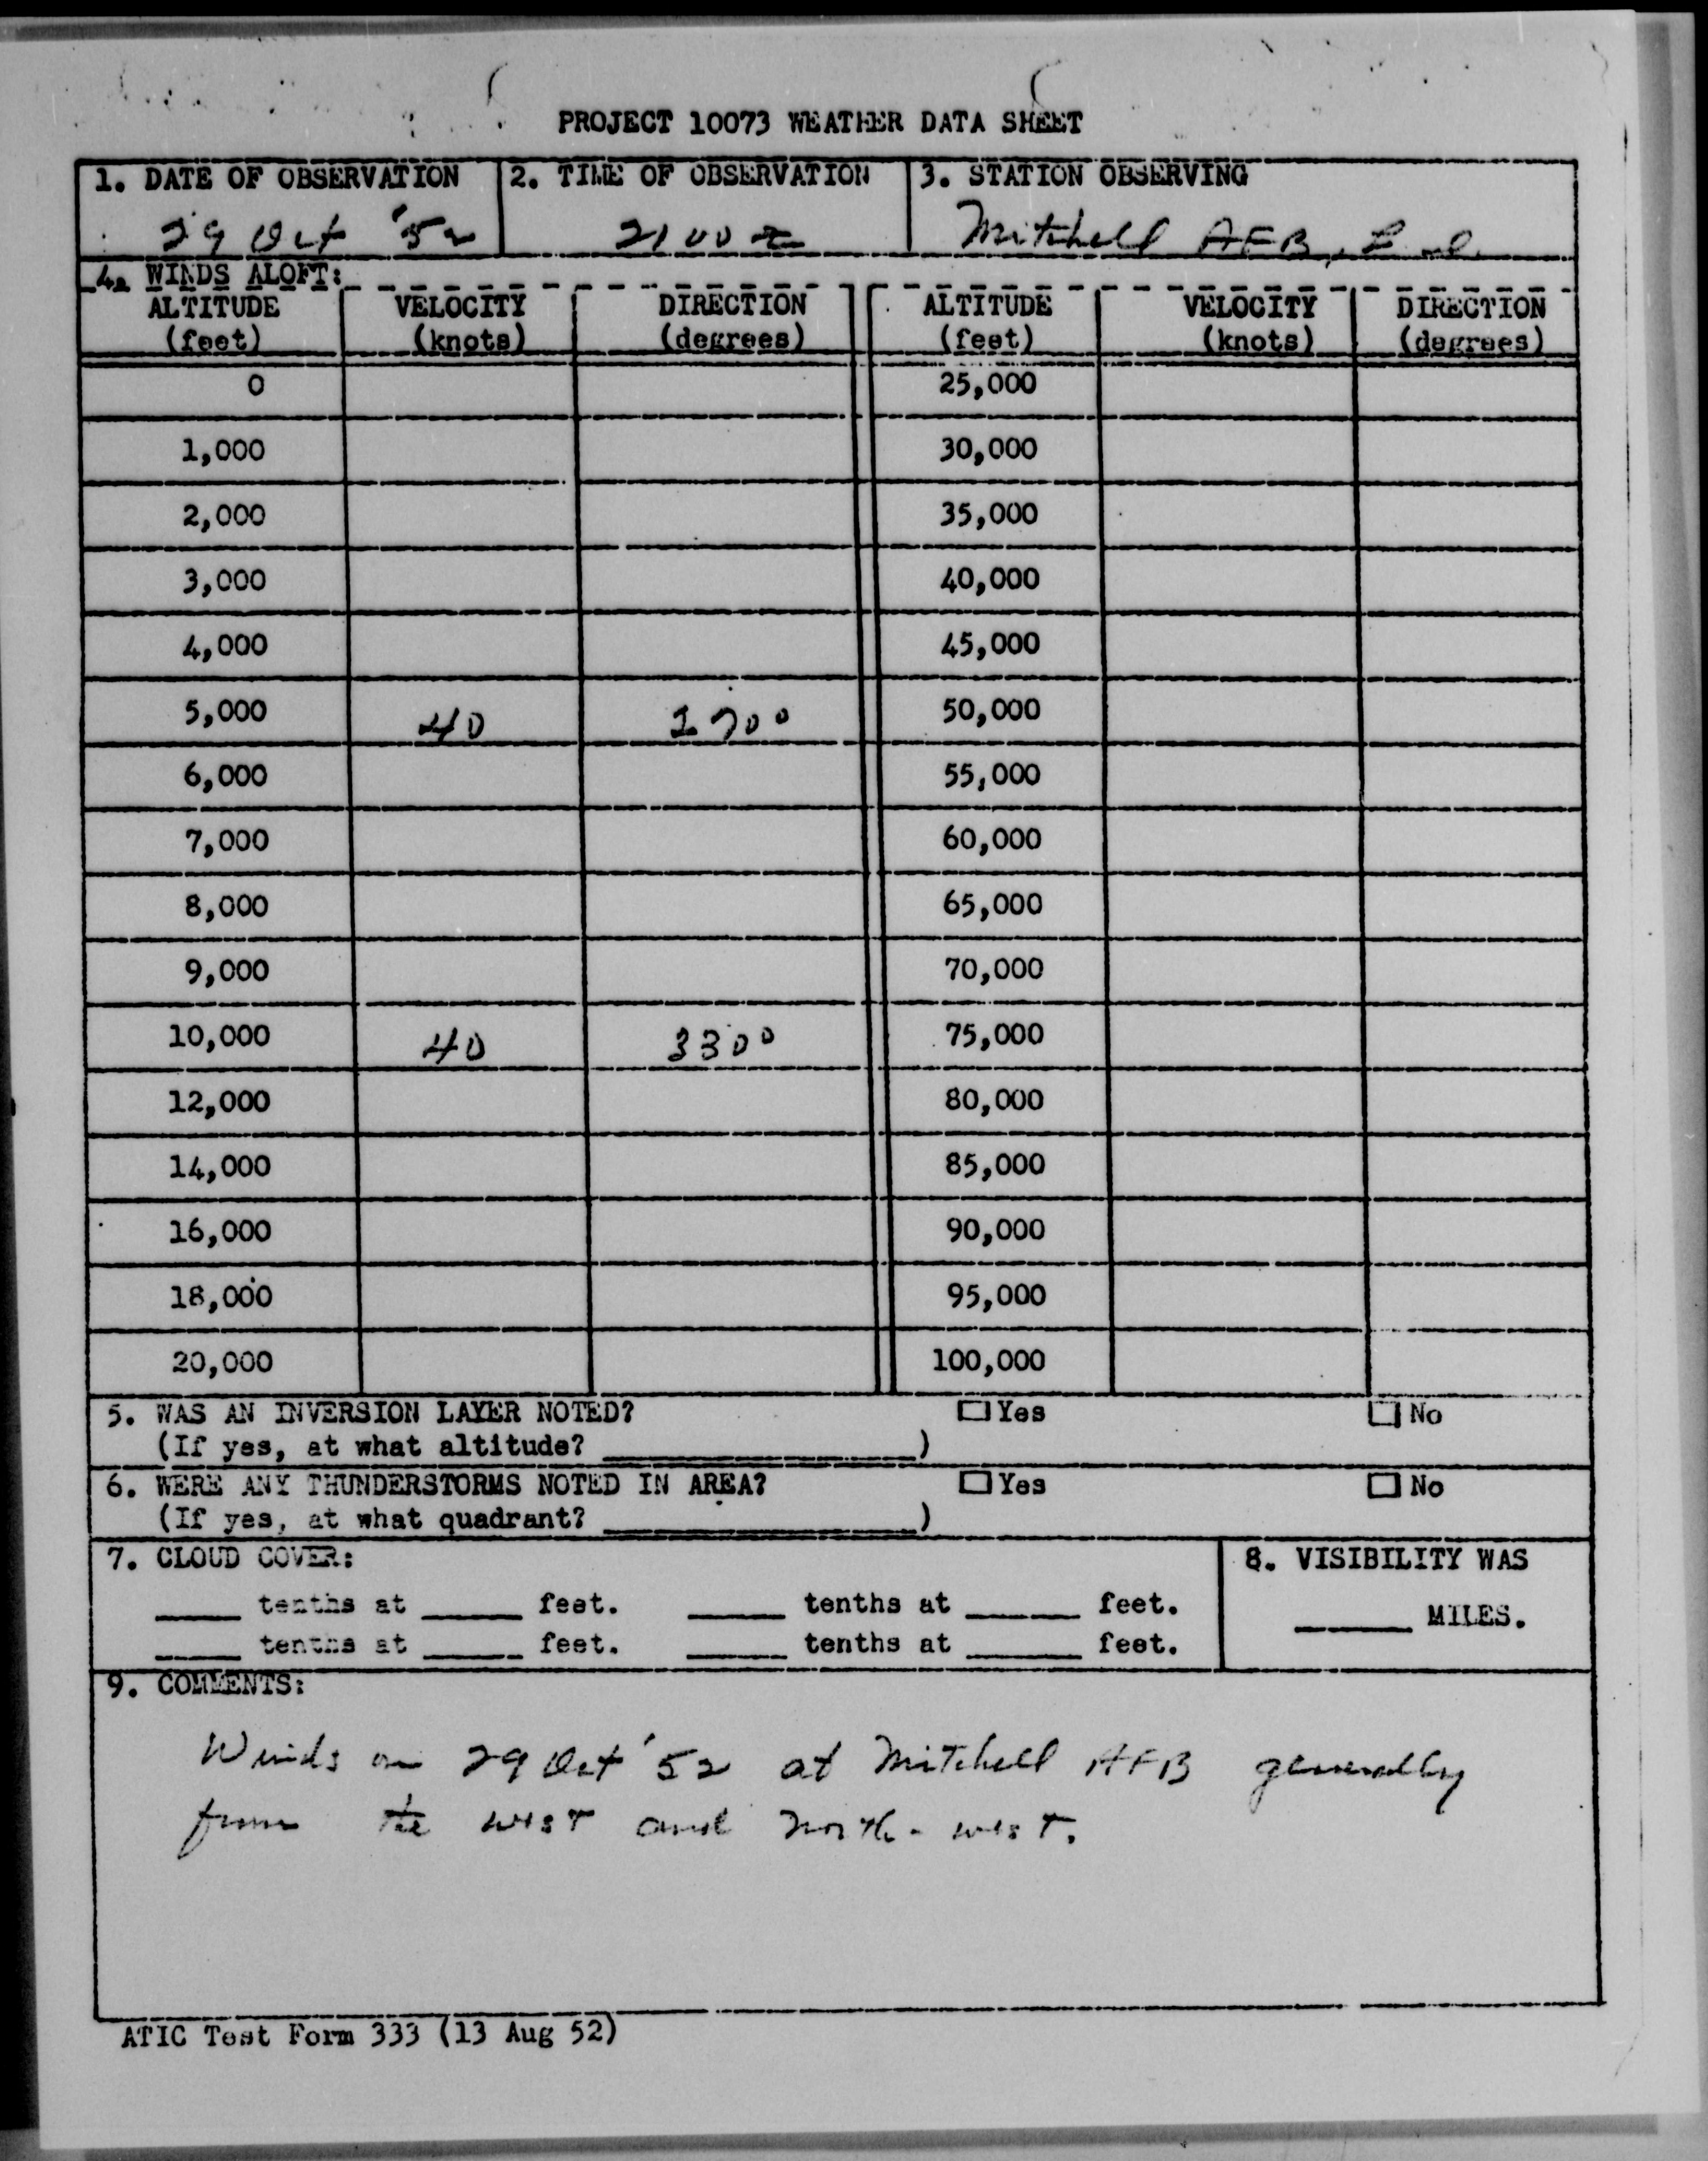 PROJECT 10073 WEATHER DATA SHEET
1. DATE OF OBSERVATION 2. TIME OF OBSERVATION 3. STATION OBSERVING
29 Oct '52 2100 Z Mitchell AFB,
4. WINDS ALOFT:
ALTITUDE VELOCITY DIRECTION ALTITUDE VELOCITY DIRECTION
(feet) (knots) (degrees) (feet) (knots) (degrees)
0 25,000
1,000 30,000
2,000 35,000
3,000 40,000
4,000 45,000
5,000 40 270° 50,000
6,000 55,000
7,000 60,000
8,000 65,000
9,000 70,000
10,000 40 330° 75,000
12,000 80,000
14,000 85,000
16,000 90,000
18,000 95,000
20,000 100,000
5. WAS AN INVERSION LAYER NOTED? Yes No
(If yes, at what altitude? )
6. WERE ANY THUNDERSTORMS NOTED IN AREA? Yes No
(If yes, at what quadrant? )
7. CLOUD COVER: 8. VISIBILITY WAS
tenths at feet. tenths at feet. MILES.
tenths at feet. tenths at feet.
9. COMMENTS:
Winds on 29 Oct '52 at Mitchell AFB generally
from the west and north-west.
ATIC Test Form 333 (13 Aug 52)